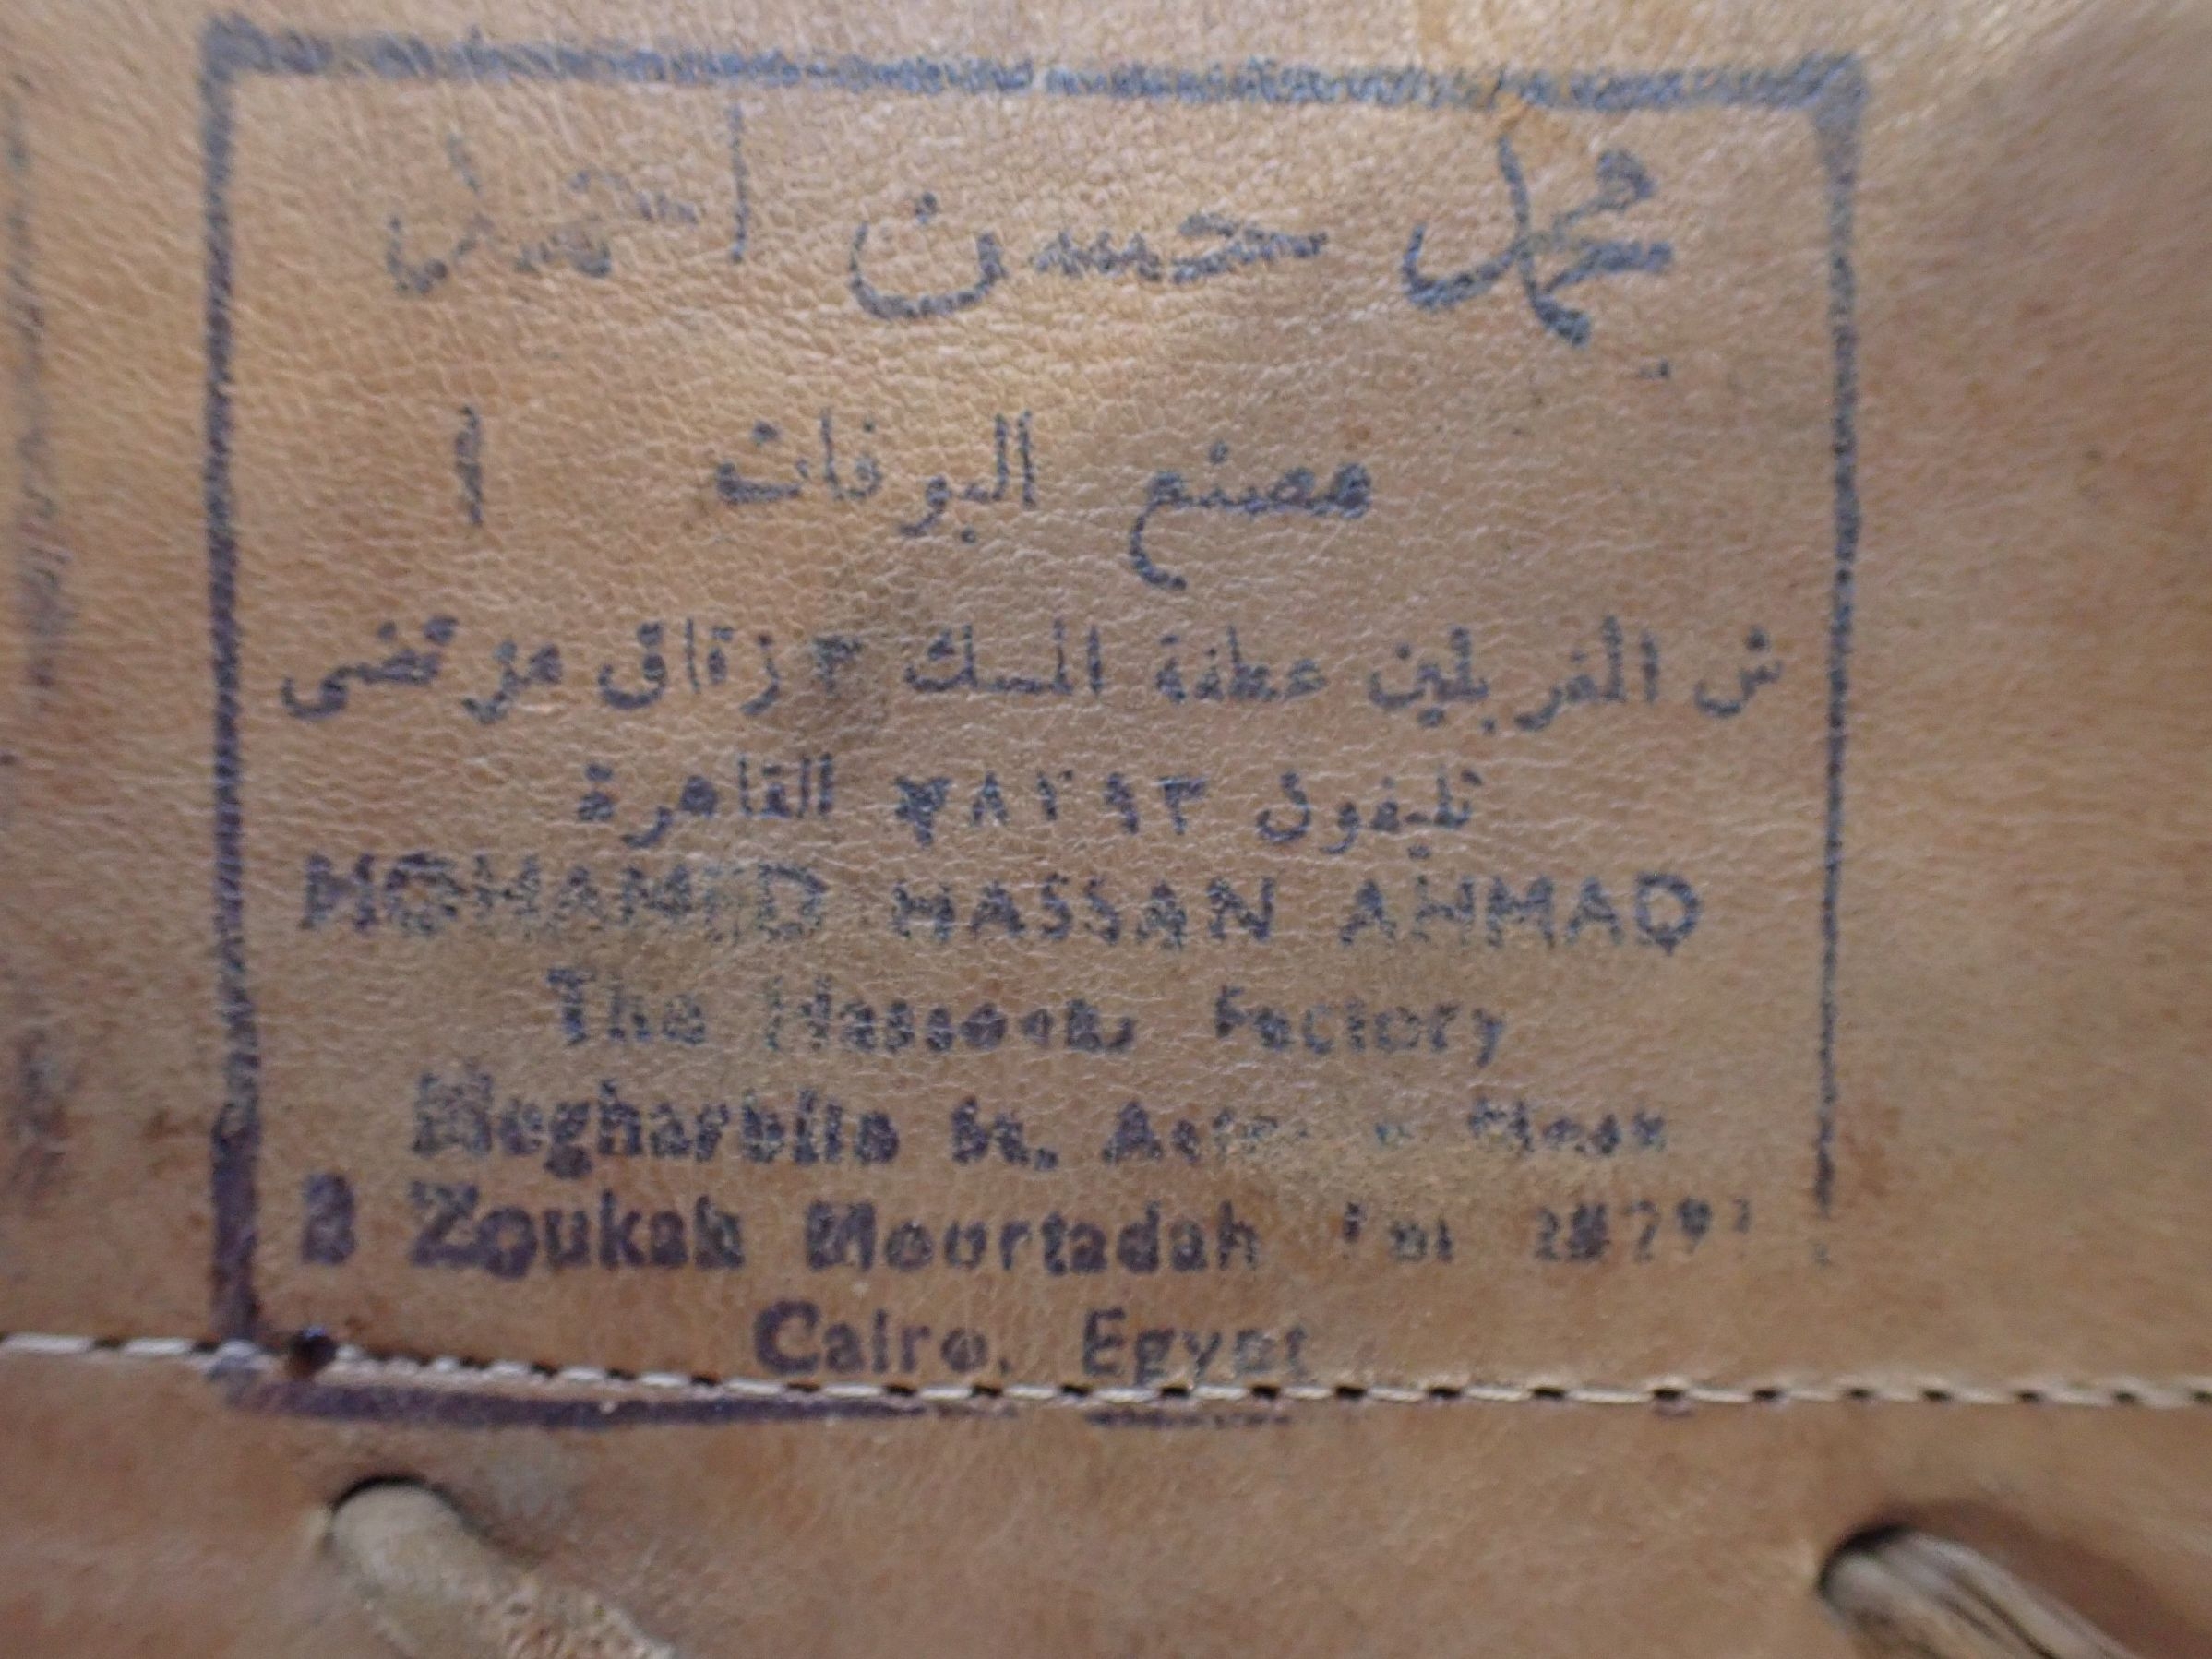 محمد حسن احمد
مصنع البوفات
ش المغربلين عطفة المسك ٣ زقاق مرتضى
تليفون القاهرة
MOHAMED HASSAN AHMAD
The Factory
Megharblin St.
3 Zoukak Mourtadah
Cairo. Egypt